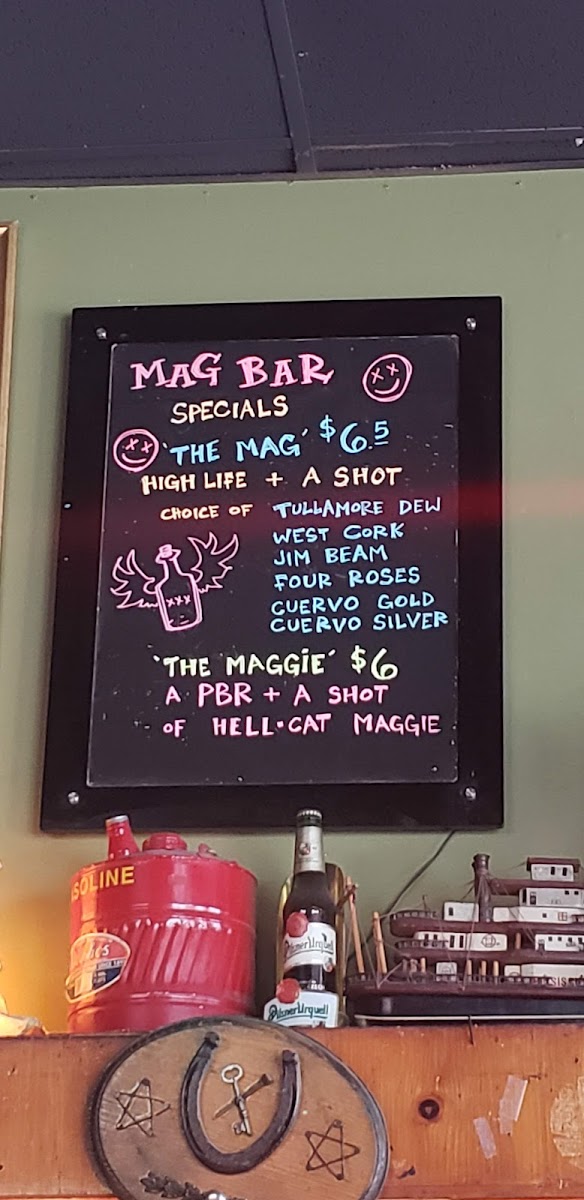 MAG BAR
SPECIALS
'THE MAG' $6.5
HIGH LIFE + A SHOT
CHOICE OF TULLAMORE DEW
WEST CORK
JIM BEAM
FOUR ROSES
CUERVO GOLD
CUERVO SILVER
XXX
'THE MAGGIE' $6
A PBR + A SHOT
OF HELL-CAT MAGGIE
SOLINE
PilsnerUrquell
PilsnerUrquell